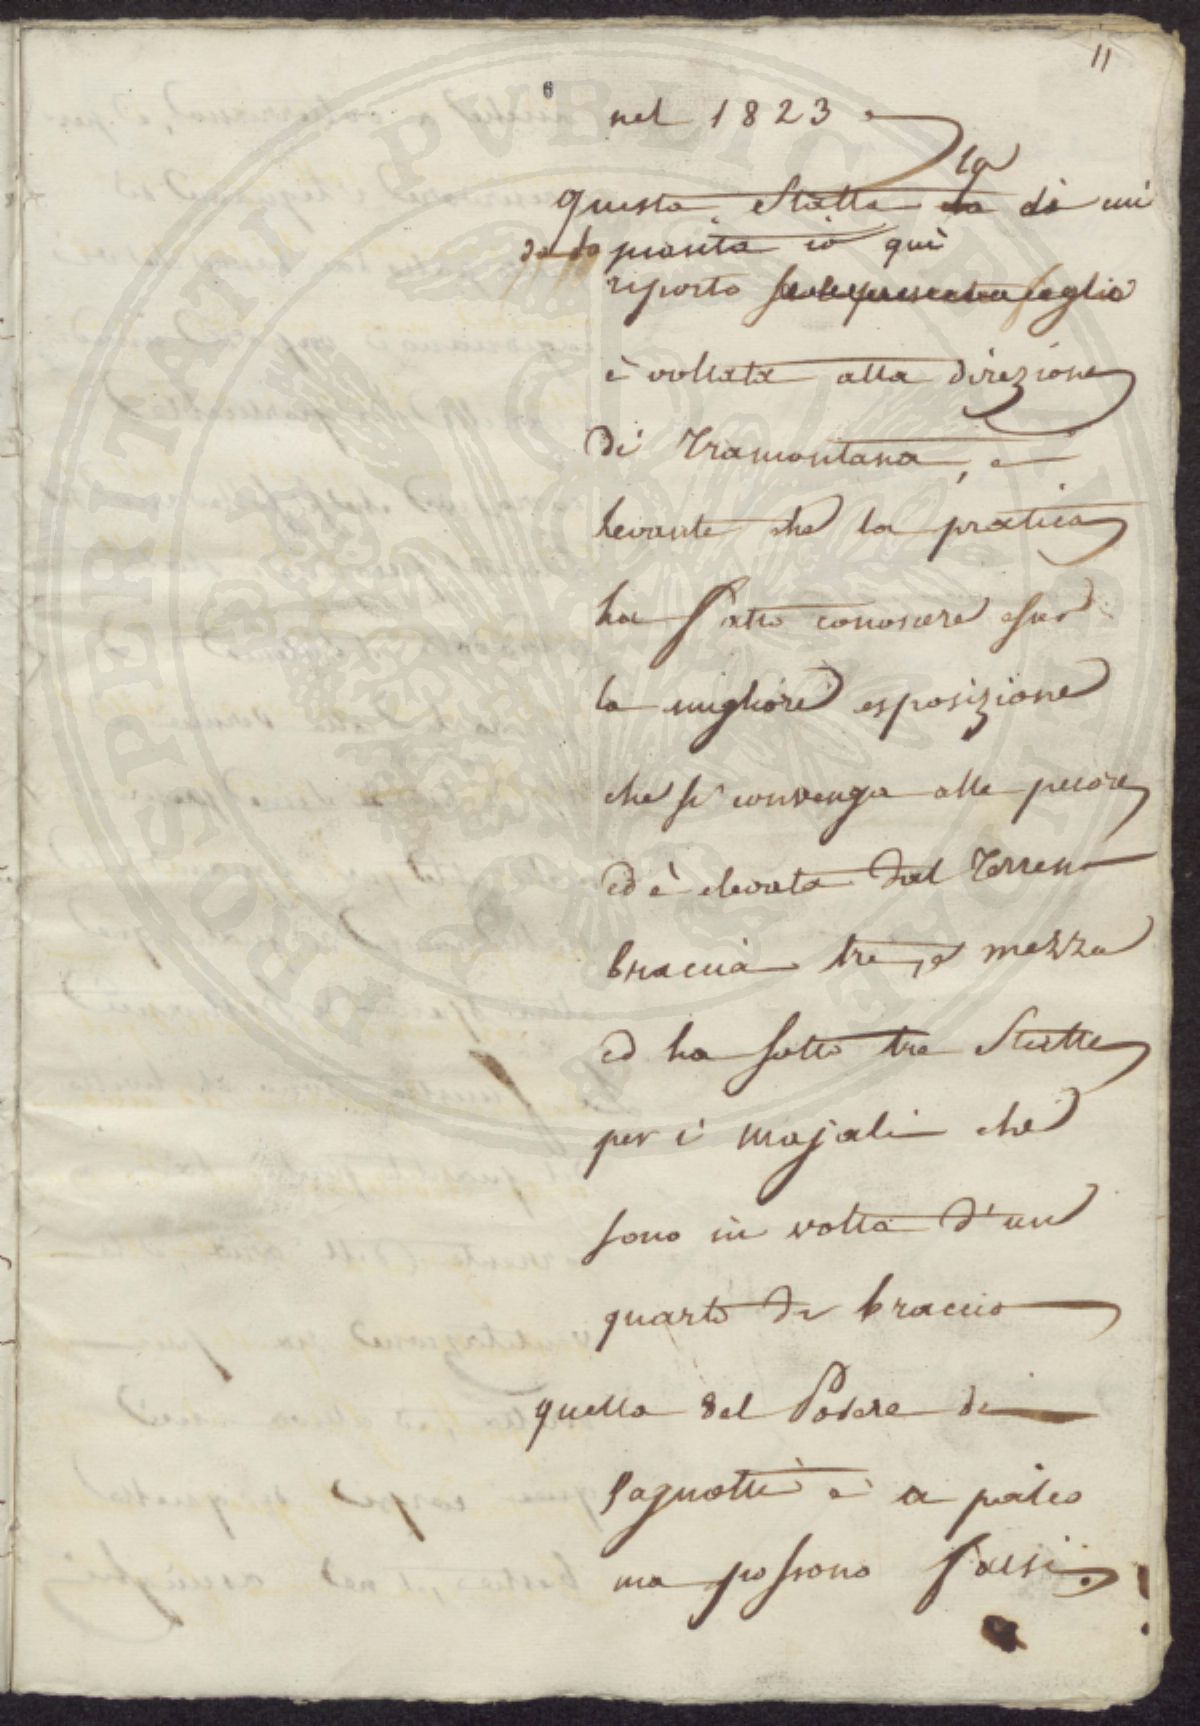 11
6
nel 1823
la
questa Stalla di cui
pianta io quì
riporto foglio
è voltata alla direzione
di Tramontana, e
levante che la pratica
ha fatto conoscere esser
la migliore esposizione
che si convenga alle pecore
ed è elevata dal Terreno
braccia tre, e mezza
ed ha sotto tre Stalle
per i majali che
sono in volta d'un
quarto di braccio
quella del Podere di
è a palco
ma possono farsi.
PUBLICAE PROSPERITATI